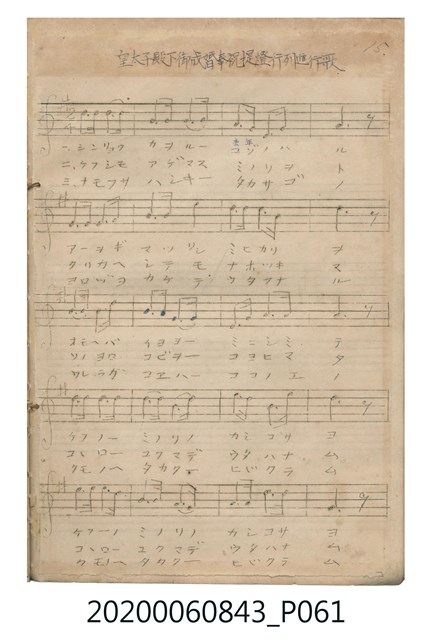 皇太子殿下御成婚奉祝提燈行列進行歌
一、シンリョク カヲルー コゾノハ ル
二、ケフシモ アデマス ミノリヲ ト
三、ナモフサ ハシキー タカサゴ ノ
アーヲギ マツリシ ミヒカリ ヲ
タリカヘ シテモ ナホツキ ヌ
ヨロヅヨ カケデ ウタフナ ル
オモヘバ イヨヨー ミニシミ テ
ソノヨロ コビヲー コヨヒマ タ
ワレラガ コヱハー ココノエ ノ
ケフノー ミノリノ カシコサ ヨ
コヽロー ユクマデ ウタハナ ム
クモノヘ タカクー ヒビクラ ム
ケフーノ ミノリノ カシコサ ヨ
コヽロー ユクマデ ウタハナ ム
クモノヘ タカクー ヒビクラ ム
20200060843_P061